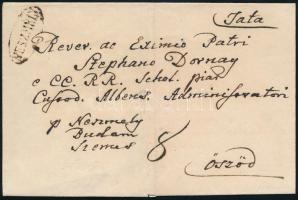 Tata
Rever. ac Eximio Patri
Stephano Dornay
e CC. R.R. Schol. piar
Cusod. Albens. Administratori
p Neszmely
Budam
Szemes
8
Öszöd